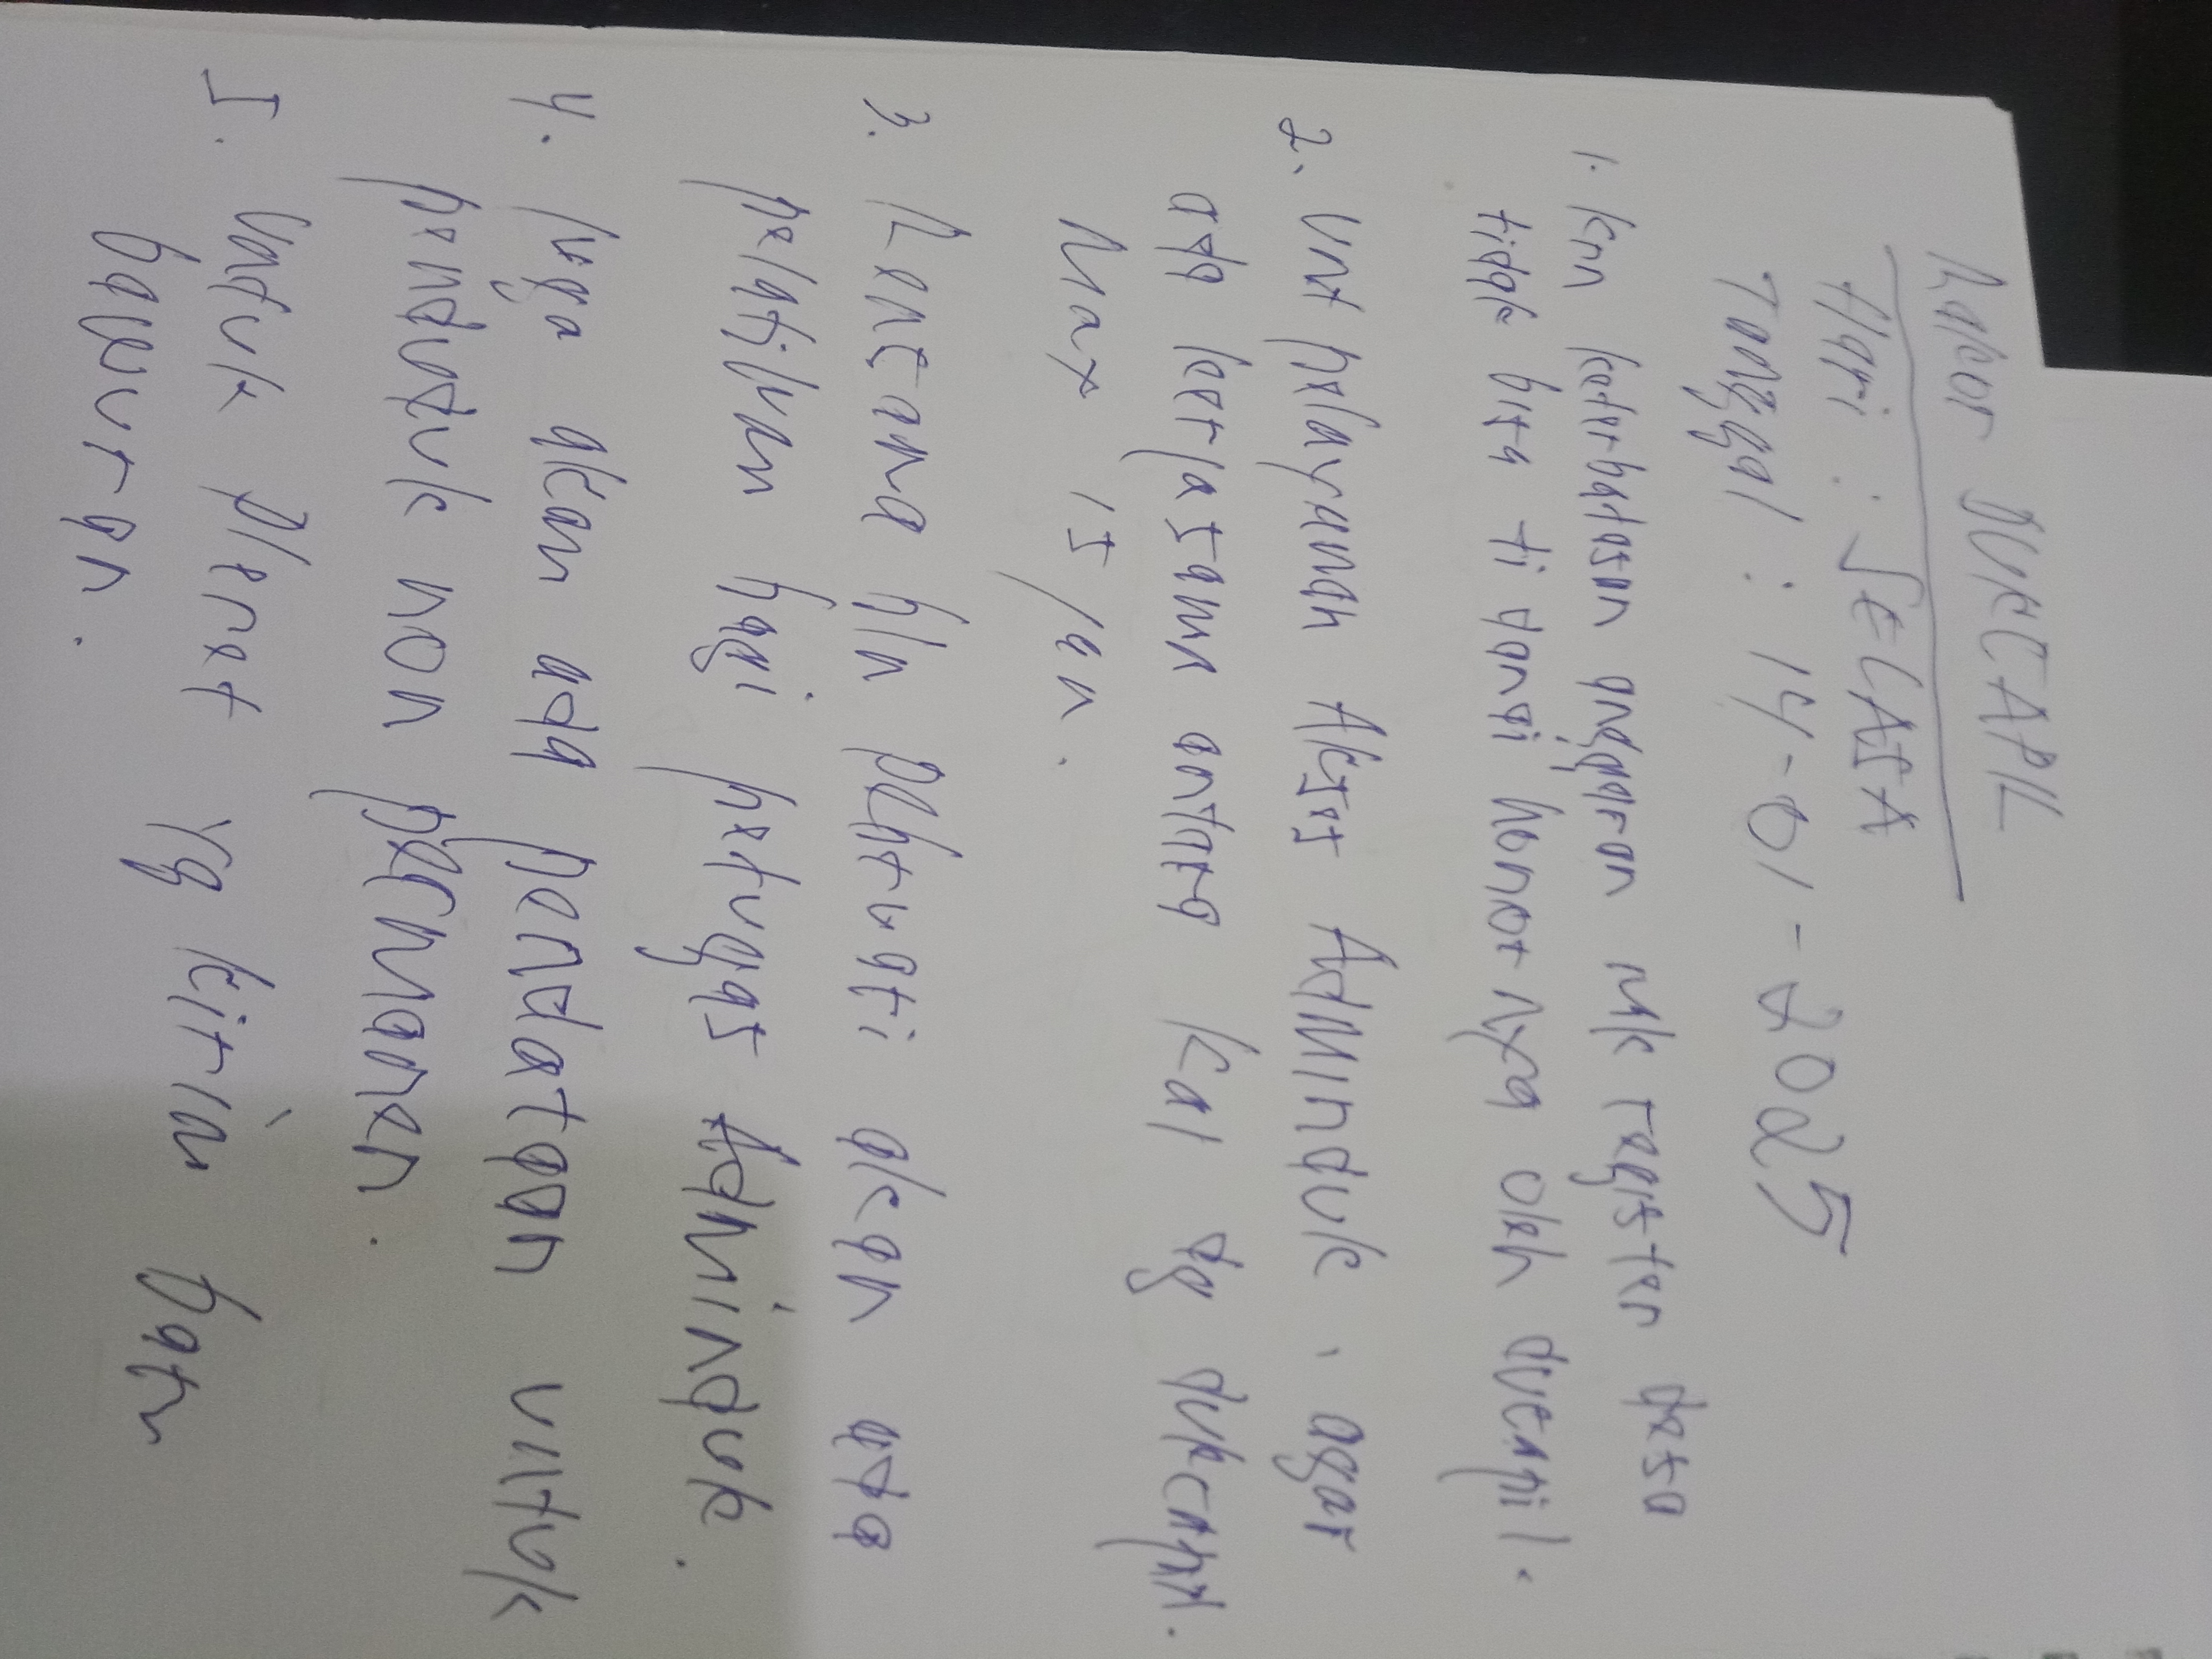 Rakor DUKCAPIL
Hari : SELASA
Tanggal : 14-01-2025
1. krn keterbatasan anggaran mk register desa
tidak bisa di danai honor nya oleh dukcapil.
2. Unt pelayanan Akses Adminduk, agar
ada kerjasama antara Kal dg dukcapil.
Max 15 Jan.
3. Rencana bln Februari akan ada
pelatihan bagi petugas Adminduk.
4. Juga akan ada pendataan untuk
penduduk non permanen.
5. Untuk yg kirim